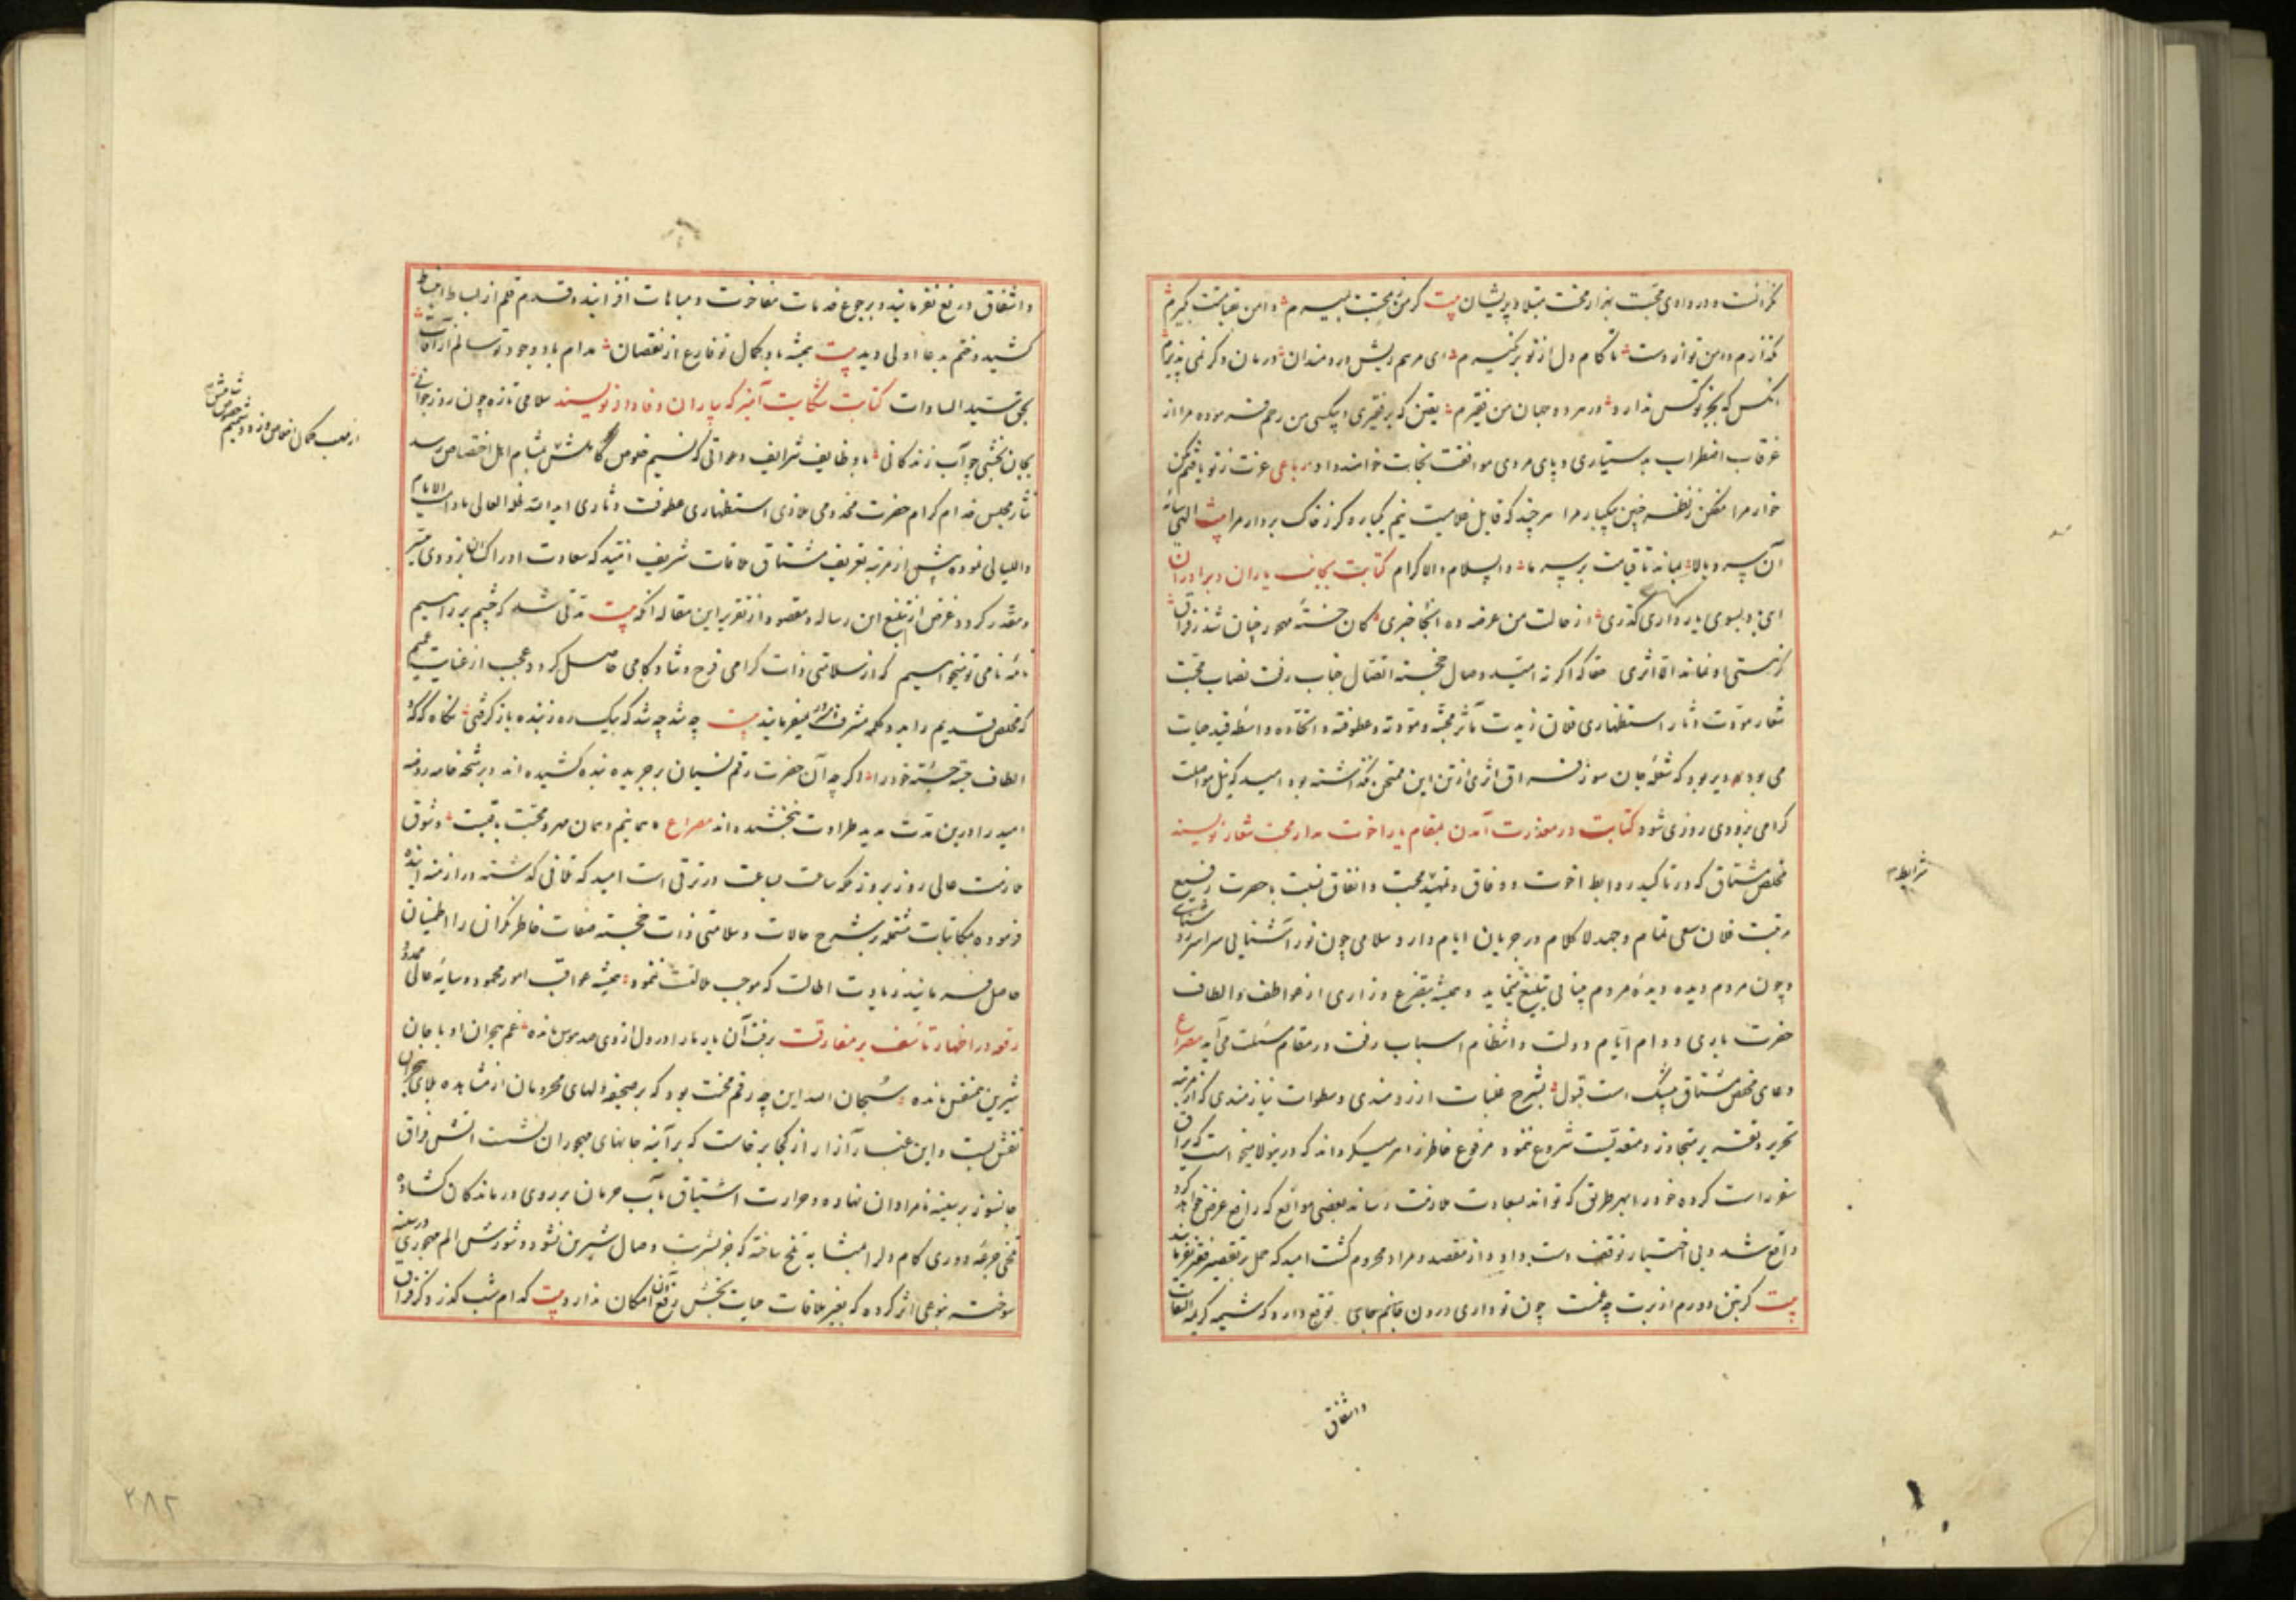 نکرانست و در وادی محبت بهزار محنت مبتلا و پریشان بیت کر من محبت بمیرم دامن قیامت بگیرم
نگذارم دامن تو از دست تا کام دل از تو برنگیرم ای مرهم ریش دردمندان درمان دگر نمی پذیرم
آنکس که بجز تو کس ندارد در هر دو جهان من فقیرم یقین که بر فقیری و بیکسی من رحم فرموده مرا از
غرقاب اضطراب بدستیاری و پای مردی موافقت نجات خواهند داد رباعی
خوار مرا مفکن ز نظر چنین بیکبار مرا هر چند که قابل غلامیت نیم یکبار دگر ز خاک بردار مرا بیت الهی سایهٔ
آن سرو بالا بماند تا قیامت بر سر ما والسلام والاکرام کتابت بجانب یاران و برادران
ای باد بسوی یار داری گذری از حالت من عرضه ده آنجا خبری کان خستهٔ مهجور چنان شد ز فراق
کز هستی او نمانده الا اثری حقا که اگر نه امید وصال خجسته اتصال جناب رفعت نصاب محبت
شعار مودت دثار استظهاری فلان زیدت مآثر محبته و مودته و عطوفته و اتحاده واسطه قید حیات
می بود دیر بود که شعلهٔ جان سوز فراق اثری از تن این ممتحن نگذاشته بود امید که نیل مواصلت
کرامی بزودی روزی شود کتابت در معذرت آمدن بمقام یار اخوت مدار محبت شعار نویسند
مخلص مشتاق که در تاکید روابط اخوت و وفاق و تمهید محبت و اتفاق نسبت با حضرت رفیع
مرتبت فلان سعی تمام و جهد لا کلام در جریان ایام دارد سلامی چون نور آشنایی سراسر روشنایی
و چون مردم دیده دیدهٔ مردم بینایی تبلیغ مینماید و همیشه بتضرع و زاری از عواطف و الطاف
حضرت باری دوام ایام دولت و انتظام اسباب رفعت در مقام مسئلت می آید مصراع
دعای مخلص مشتاق بیشک است قبول بشرح غلبات آرزومندی و سطوات نیازمندی که از مرتبه
تحریر و تقریر متجاوز و متعدیست شروع ننمود مرفوع خاطر زاهر میگرداند که درینولا میخواست که یراق
سفر راست کرده خود را بهر طریق که تواند بسعادت ملازمت رساند بعضی موانع که رافع عرض خواهد کرد
واقع شد و بی اختیار توقف دست داد و از مقصد و مراد محروم کشت امید که حمل بر تقصیر فقیر نفرمایند
بیت کر بتن دورم از برت چه غمست چون تو داری درون جانم جای توقع دارد که شیمه کریمه التفات
شرایط
واشفاق
واشفاق دریغ نفرمایند و برجوع خدمات مفاخرت و مباهات افزایند و قدم قلم از بساط انبساط
کشید و ختم بدعا اولی دید بیت همیشه باد کمال تو فارغ از نقصان مدام باد وجود تو سالم از آفات
بحق سید السادات کتابت شکایت آمیز که یاران وفادار نویسند سلامی تازه چون روز جوانی
بجان بخشی چو آب زندگانی با وظایف شرایف دعواتی که نسیم خلوص بمشام اهل اختصاص رسد
نثار مجلس خدام کرام حضرت مخدومی ملاذی استظهاری عطوفت دثاری ابد الله ظله العالی مادام الایام
واللیالی نموده پیش از مرتبه تعریف مشتاق ملاقات شریف افتید که سعادت ادراک آن بزودی میسر
و مقدر کردد غرض از تبلیغ این رساله و مقصود از تقریر این مقاله آنکه بیت مدتی شد که چشم بر راهیم
نامهٔ نامی تو میخواهیم که از سلامتی ذات کرامی فرح و شادکامی حاصل کردد عجب از عنایت عمیم
که مخلص قدیم را بدو کلمه مشرف نمیفرمایند بیت چه شد چه شد که بیک ره ز بنده باز کرفتی نگاه کوکبهٔ
الطاف جسته جستهٔ خود را اگر چه آن حضرت رقم نسیان بر جریده بنده کشیده اند و برشحه خامه روضه
امید را درین مدت مدید طراوت نبخشیده اند مصراع ما همانیم و همان مهر و محبت باقیست و شوق
ملازمت عالی روز بروز بلکه ساعت بساعت در ترقی است امید که تلافی گذشته در ازمنه آینده
فرموده بمکاتبات مشتمله بر شرح حالات و سلامتی ذات خجسته صفات خاطر نکران را اطمینان
حاصل فرمایند زیادت اطالت که موجب ملالتست ننمود همیشه عواقب امور محمود و سایه عالی ممدود
رقعه در اظهار تاسف بر مفارقت برفت آن یار ما را در دل از وی صد هوس مانده غم هجران او با جان
شیرین همنفس مانده سبحان الله این چه رقم محنت بود که بر صحیفه دلهای محرومان از مشاهده بلای هجران
نقش بست و این غبار آزار از کجا برخاست که بر آینه جانهای مهجوران نشست آتش فراق
جانسوز بر سینه نامرادان نهاده و حرارت اشتیاق باب حرمان بر روی درماندکان کشاده
تلخی جرعه دوری کام دلرا بمثابه تلخ ساخته که جز بشربت وصال شیرین نشود و شورش الم مهجوری در سینه
سوخته بنوعی اثر کرده که بغیر ملاقات حیات بخش رفع آن امکان ندارد بیت کدام شب گذرد کز فراق
۲۸۲